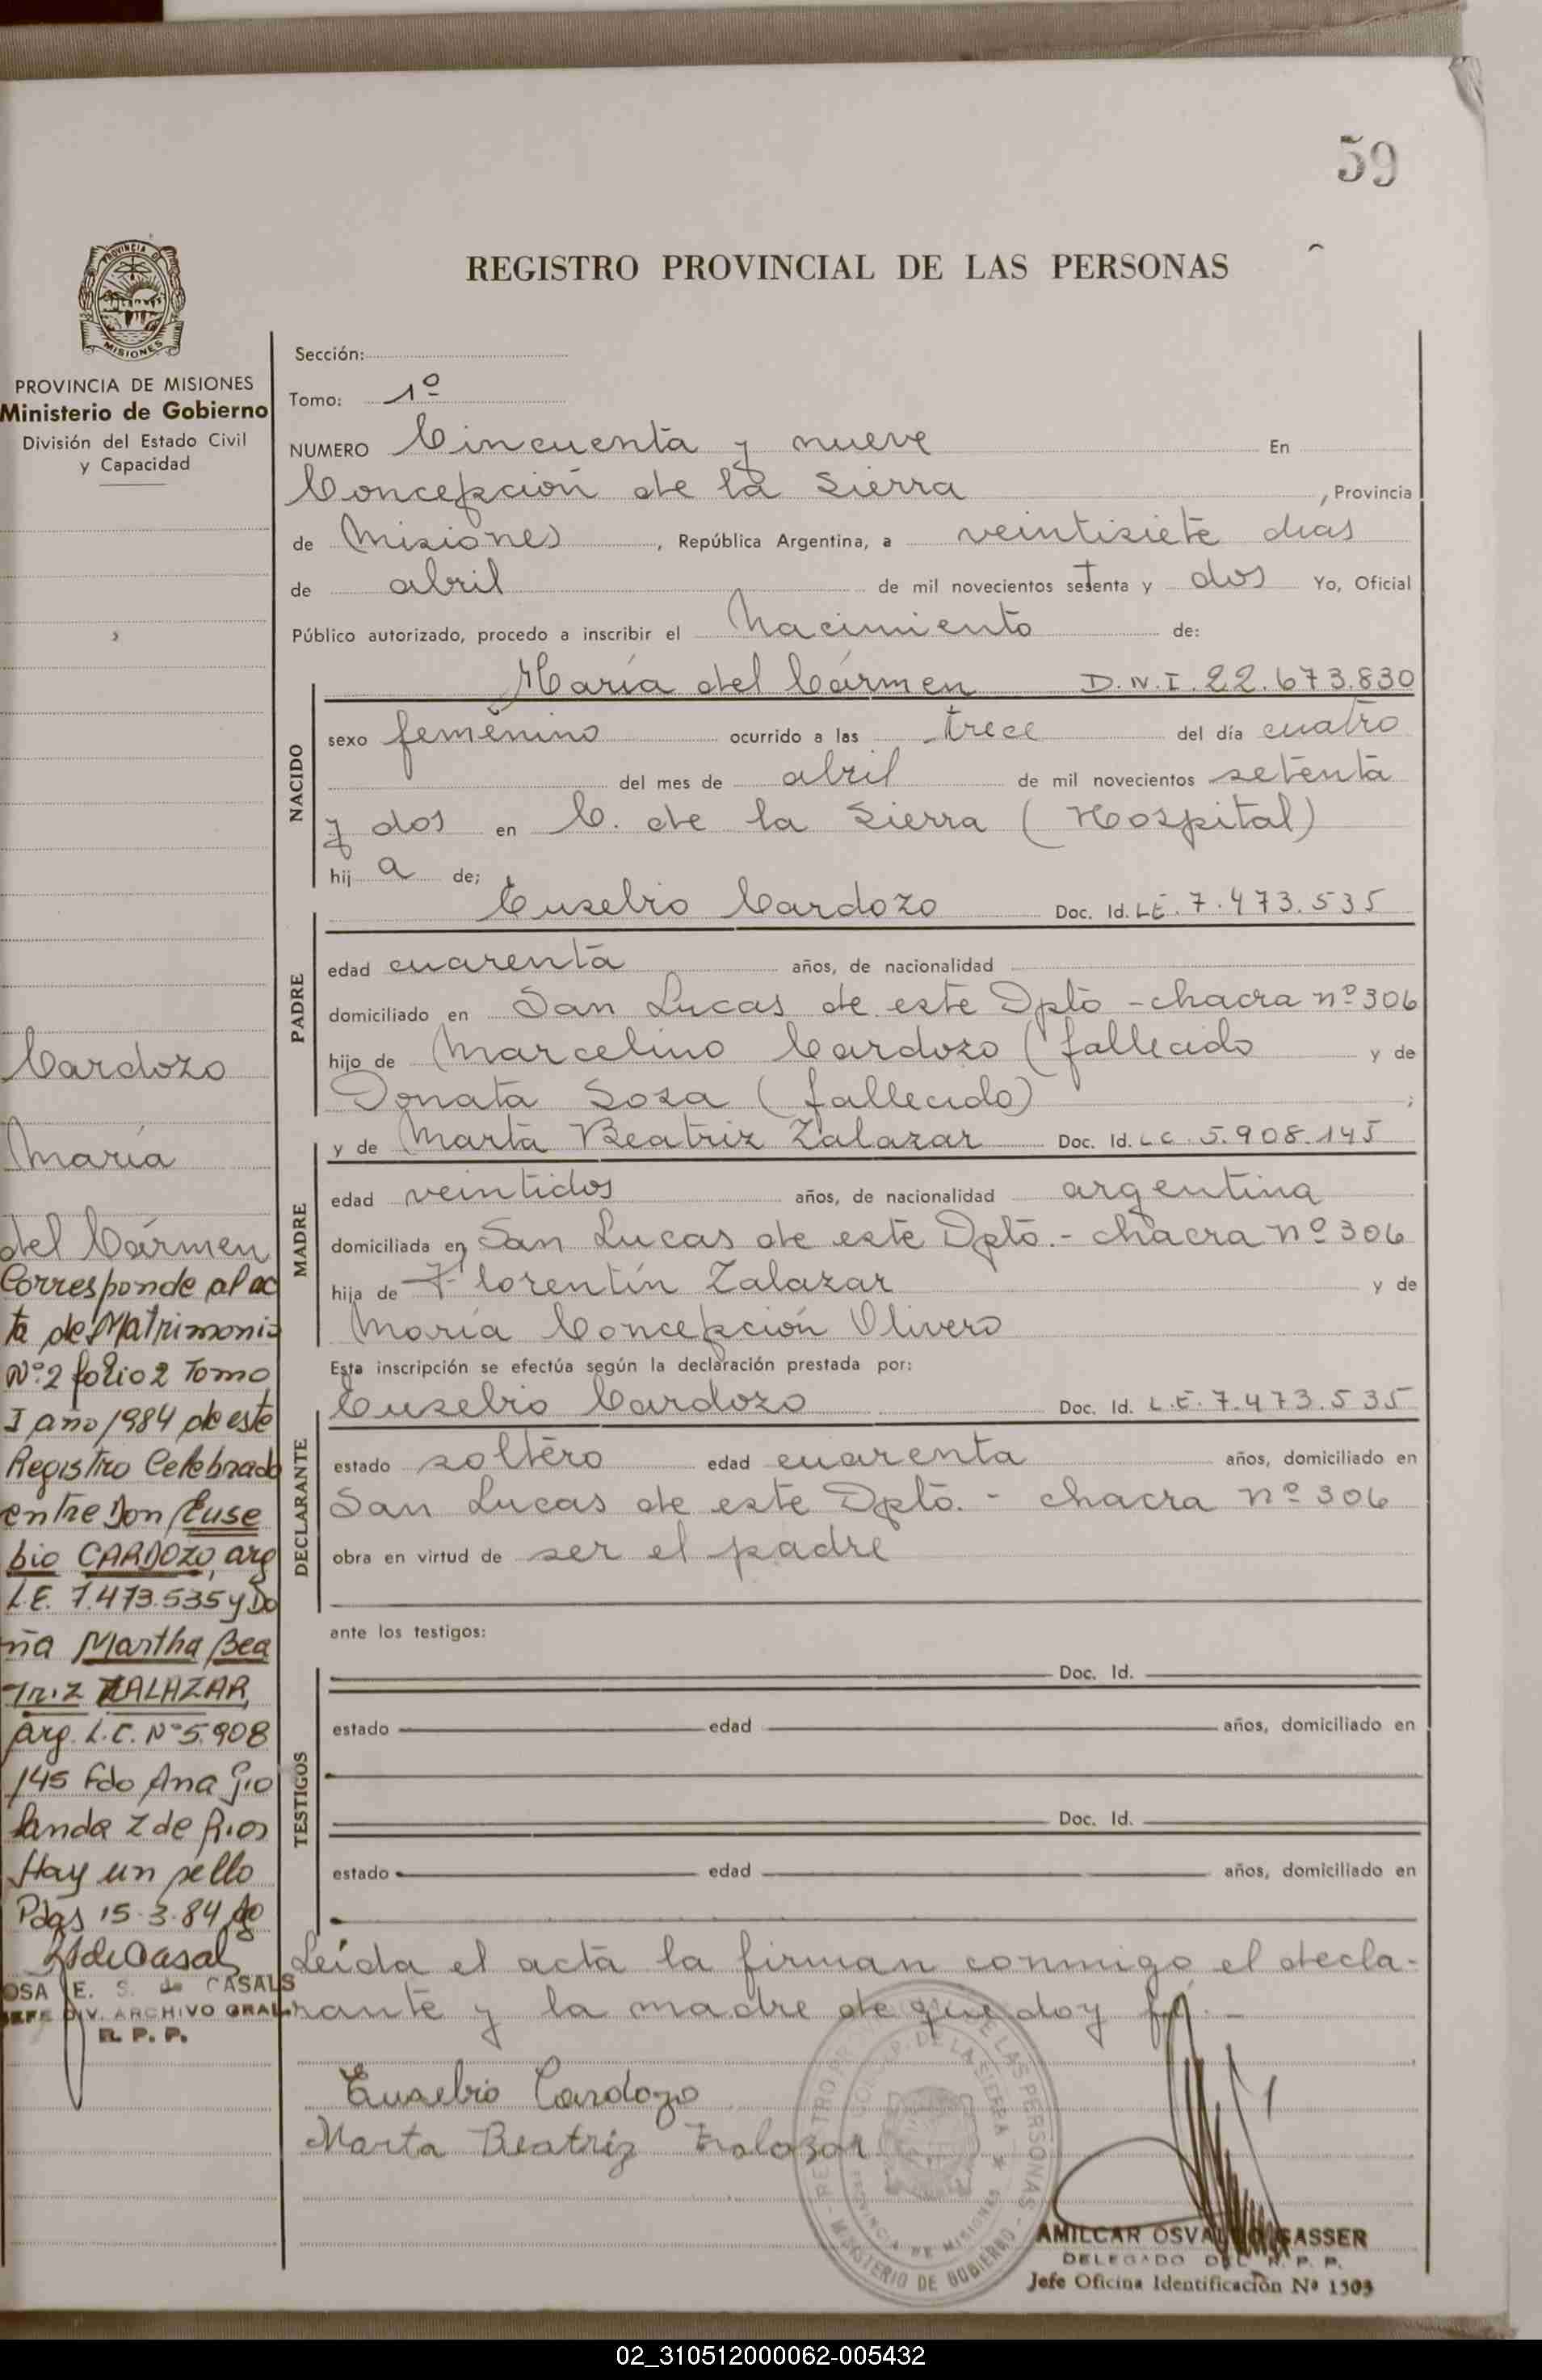 59
REGISTRO PROVINCIAL DE LAS PERSONAS
PROVINCIA DE
MISIONES
PROVINCIA DE MISIONES
Ministerio de Gobierno
División del Estado Civil
y Capacidad
Cardozo
María
del Cármen
Corresponde al ac
ta de Matrimonio
Nº: 2 folio 2 Tomo
I año 1984 de este
Registro Celebrado
entre Don Euse
bio CARDOZO, arg
L.E. 7.473.535 y Do
ña Martha Bea
triz ZALAZAR,
arg. L.C. Nº 5.908
145 Fdo Ana Yio
landa Z de Rios
Hay un sello
Pdas 15-3-84
OSA E. S. de CASALS
JEFE DIV. ARCHIVO GRAL.
R. P. P.
Sección:
Tomo: 1º
NUMERO Cincuenta y nueve En
Concepción de la Sierra , Provincia
de Misiones , República Argentina, a veintisiete días
de abril de mil novecientos setenta y dos Yo, Oficial
Público autorizado, procedo a inscribir el Nacimiento de:
NACIDO
María del Cármen D.N.I. 22.673.830
sexo femenino ocurrido a las trece del día cuatro
del mes de abril de mil novecientos setenta
y dos en C. de la Sierra (Hospital)
hij a de;
PADRE
Eusebio Cardozo Doc. Id. L E. 7.473.535
edad cuarenta años, de nacionalidad
domiciliado en San Lucas de este Dpto - chacra nº 306
hijo de Marcelino Cardozo (fallecido y de
Donata Sosa (fallecido) ;
MADRE
y de Marta Beatriz Zalazar Doc. Id. L C. 5.908.145
edad veintidos años, de nacionalidad argentina
domiciliada en San Lucas de este Dpto. - chacra nº 306
hija de Florentín Zalazar y de
María Concepción Olivero
Esta inscripción se efectúa según la declaración prestada por:
DECLARANTE
Eusebio Cardozo Doc. Id. L.E. 7.473.535
estado soltero edad cuarenta años, domiciliado en
San Lucas de este Dpto. - chacra nº 306
obra en virtud de ser el padre
ante los testigos:
TESTIGOS
Doc. Id.
estado edad años, domiciliado en
Doc. Id.
estado edad años, domiciliado en
Leída el acta la firman conmigo el decla-
rante y la madre de que doy fé. -
Eusebio Cardozo
Marta Beatriz Zalazar
MINISTERIO DE GOBIERNO
PROVINCIA DE MISIONES
AMILCAR OSVALDO GASSER
DELEGADO DEL R. P. P.
Jefe Oficina Identificación Nº 1503
02_310512000062-005432